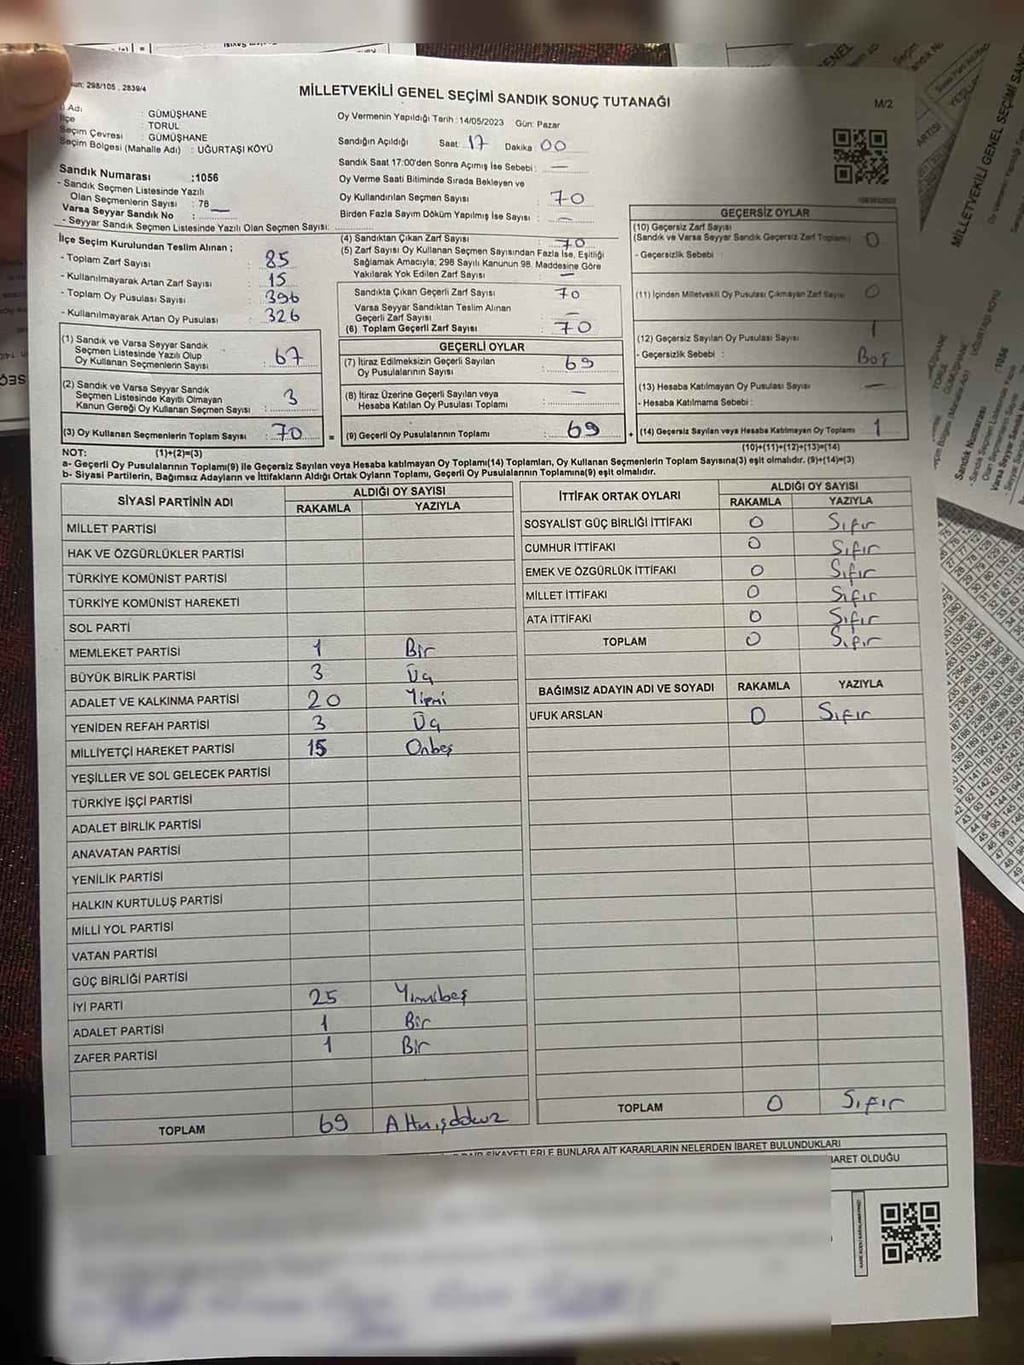 298/105 , 2839/4
MİLLETVEKİLİ GENEL SEÇİMİ SANDIK SONUÇ TUTANAĞI
M/2
Adı : GÜMÜŞHANE
İlçe : TORUL
Seçim Çevresi : GÜMÜŞHANE
Seçim Bölgesi (Mahalle Adı) : UĞURTAŞI KÖYÜ
Sandık Numarası :1056
- Sandık Seçmen Listesinde Yazılı
Olan Seçmenlerin Sayısı : 78
Varsa Seyyar Sandık No : —
- Seyyar Sandık Seçmen Listesinde Yazılı Olan Seçmen Sayısı:
Oy Vermenin Yapıldığı Tarih : 14/05/2023 Gün: Pazar
Sandığın Açıldığı Saat: 17 Dakika 00
Sandık Saat 17:00'den Sonra Açımış İse Sebebi : —
Oy Verme Saati Bitiminde Sırada Bekleyen ve
Oy Kullandırılan Seçmen Sayısı 70
Birden Fazla Sayım Döküm Yapılmış İse Sayısı : —
İlçe Seçim Kurulundan Teslim Alınan ;
- Toplam Zarf Sayısı : 85
- Kullanılmayarak Artan Zarf Sayısı : 15
- Toplam Oy Pusulası Sayısı : 396
- Kullanılmayarak Artan Oy Pusulası : 326
(1) Sandık ve Varsa Seyyar Sandık
Seçmen Listesinde Yazılı Olup
Oy Kullanan Seçmenlerin Sayısı : 67
(2) Sandık ve Varsa Seyyar Sandık
Seçmen Listesinde Kayıtlı Olmayan
Kanun Gereği Oy Kullanan Seçmen Sayısı : 3
(3) Oy Kullanan Seçmenlerin Toplam Sayısı : 70
(4) Sandıktan Çıkan Zarf Sayısı 70
(5) Zarf Sayısı Oy Kullanan Seçmen Sayısından Fazla İse, Eşitliği
Sağlamak Amacıyla; 298 Sayılı Kanunun 98. Maddesine Göre
Yakılarak Yok Edilen Zarf Sayısı —
Sandıkta Çıkan Geçerli Zarf Sayısı 70
Varsa Seyyar Sandıktan Teslim Alınan
Geçerli Zarf Sayısı —
(6) Toplam Geçerli Zarf Sayısı 70
GEÇERLİ OYLAR
(7) İtiraz Edilmeksizin Geçerli Sayılan
Oy Pusulalarının Sayısı : 69
(8) İtiraz Üzerine Geçerli Sayılan veya
Hesaba Katılan Oy Pusulası Toplamı : —
= (9) Geçerli Oy Pusulalarının Toplamı : 69
GEÇERSİZ OYLAR
(10) Geçersiz Zarf Sayısı
(Sandık ve Varsa Seyyar Sandık Geçersiz Zarf Toplamı) 0
- Geçersizlik Sebebi :
(11) İçinden Milletvekili Oy Pusulası Çıkmayan Zarf Sayısı 0
(12) Geçersiz Sayılan Oy Pusulası Sayısı 1
- Geçersizlik Sebebi : Boş
(13) Hesaba Katılmayan Oy Pusulası Sayısı —
- Hesaba Katılmama Sebebi :
+ (14) Geçersiz Sayılan veya Hesaba Katılmayan Oy Toplamı 1
NOT: (1)+(2)=(3) (10)+(11)+(12)+(13)=(14)
a- Geçerli Oy Pusulalarının Toplamı(9) ile Geçersiz Sayılan veya Hesaba katılmayan Oy Toplamı(14) Toplamları, Oy Kullanan Seçmenlerin Toplam Sayısına(3) eşit olmalıdır. (9)+(14)=(3)
b- Siyasi Partilerin, Bağımsız Adayların ve İttifakların Aldığı Ortak Oyların Toplamı, Geçerli Oy Pusulalarının Toplamına(9) eşit olmalıdır.
SİYASİ PARTİNİN ADI ALDIĞI OY SAYISI
RAKAMLA YAZIYLA
MİLLET PARTİSİ
HAK VE ÖZGÜRLÜKLER PARTİSİ
TÜRKİYE KOMÜNİST PARTİSİ
TÜRKİYE KOMÜNİST HAREKETİ
SOL PARTİ
MEMLEKET PARTİSİ 1 Bir
BÜYÜK BİRLİK PARTİSİ 3 Üç
ADALET VE KALKINMA PARTİSİ 20 Yirmi
YENİDEN REFAH PARTİSİ 3 Üç
MİLLİYETÇİ HAREKET PARTİSİ 15 Onbeş
YEŞİLLER VE SOL GELECEK PARTİSİ
TÜRKİYE İŞÇİ PARTİSİ
ADALET BİRLİK PARTİSİ
ANAVATAN PARTİSİ
YENİLİK PARTİSİ
HALKIN KURTULUŞ PARTİSİ
MİLLİ YOL PARTİSİ
VATAN PARTİSİ
GÜÇ BİRLİĞİ PARTİSİ
İYİ PARTİ 25 Yirmibeş
ADALET PARTİSİ 1 Bir
ZAFER PARTİSİ 1 Bir
TOPLAM 69 Altmışdokuz
İTTİFAK ORTAK OYLARI ALDIĞI OY SAYISI
RAKAMLA YAZIYLA
SOSYALİST GÜÇ BİRLİĞİ İTTİFAKI 0 Sıfır
CUMHUR İTTİFAKI 0 Sıfır
EMEK VE ÖZGÜRLÜK İTTİFAKI 0 Sıfır
MİLLET İTTİFAKI 0 Sıfır
ATA İTTİFAKI 0 Sıfır
TOPLAM 0 Sıfır
BAĞIMSIZ ADAYIN ADI VE SOYADI RAKAMLA YAZIYLA
UFUK ARSLAN 0 Sıfır
TOPLAM 0 Sıfır
ŞİKAYETLERLE BUNLARA AİT KARARLARIN NELERDEN İBARET BULUNDUKLARI
BARET OLDUĞU